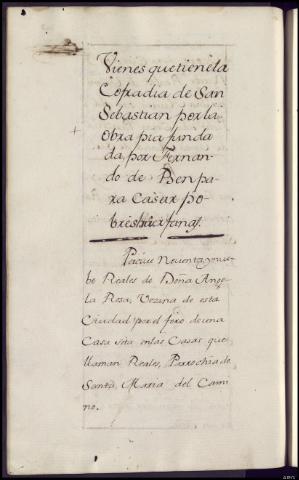 Vienes que tiene la
Cofradia de San
Sebastian por la
obra pia funda
da por Fernan-
do de Ben pa
ra Casar po-
bres huerfanas.
Reales de Doña Ange
la Rosa, Vezina de esta
Ciudad por el foro de una
Casa sita en las Casas que
llaman Reales, Parrochia de
Santa Maria del Cami
no.